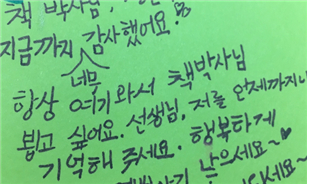 책 박사님,
지금까지 너무 감사했어요.
항상 여기와서 책박사님
뵙고 싶어요. 선생님, 저를 언제까지나
기억해 주세요. 행복하게
낳으세요~